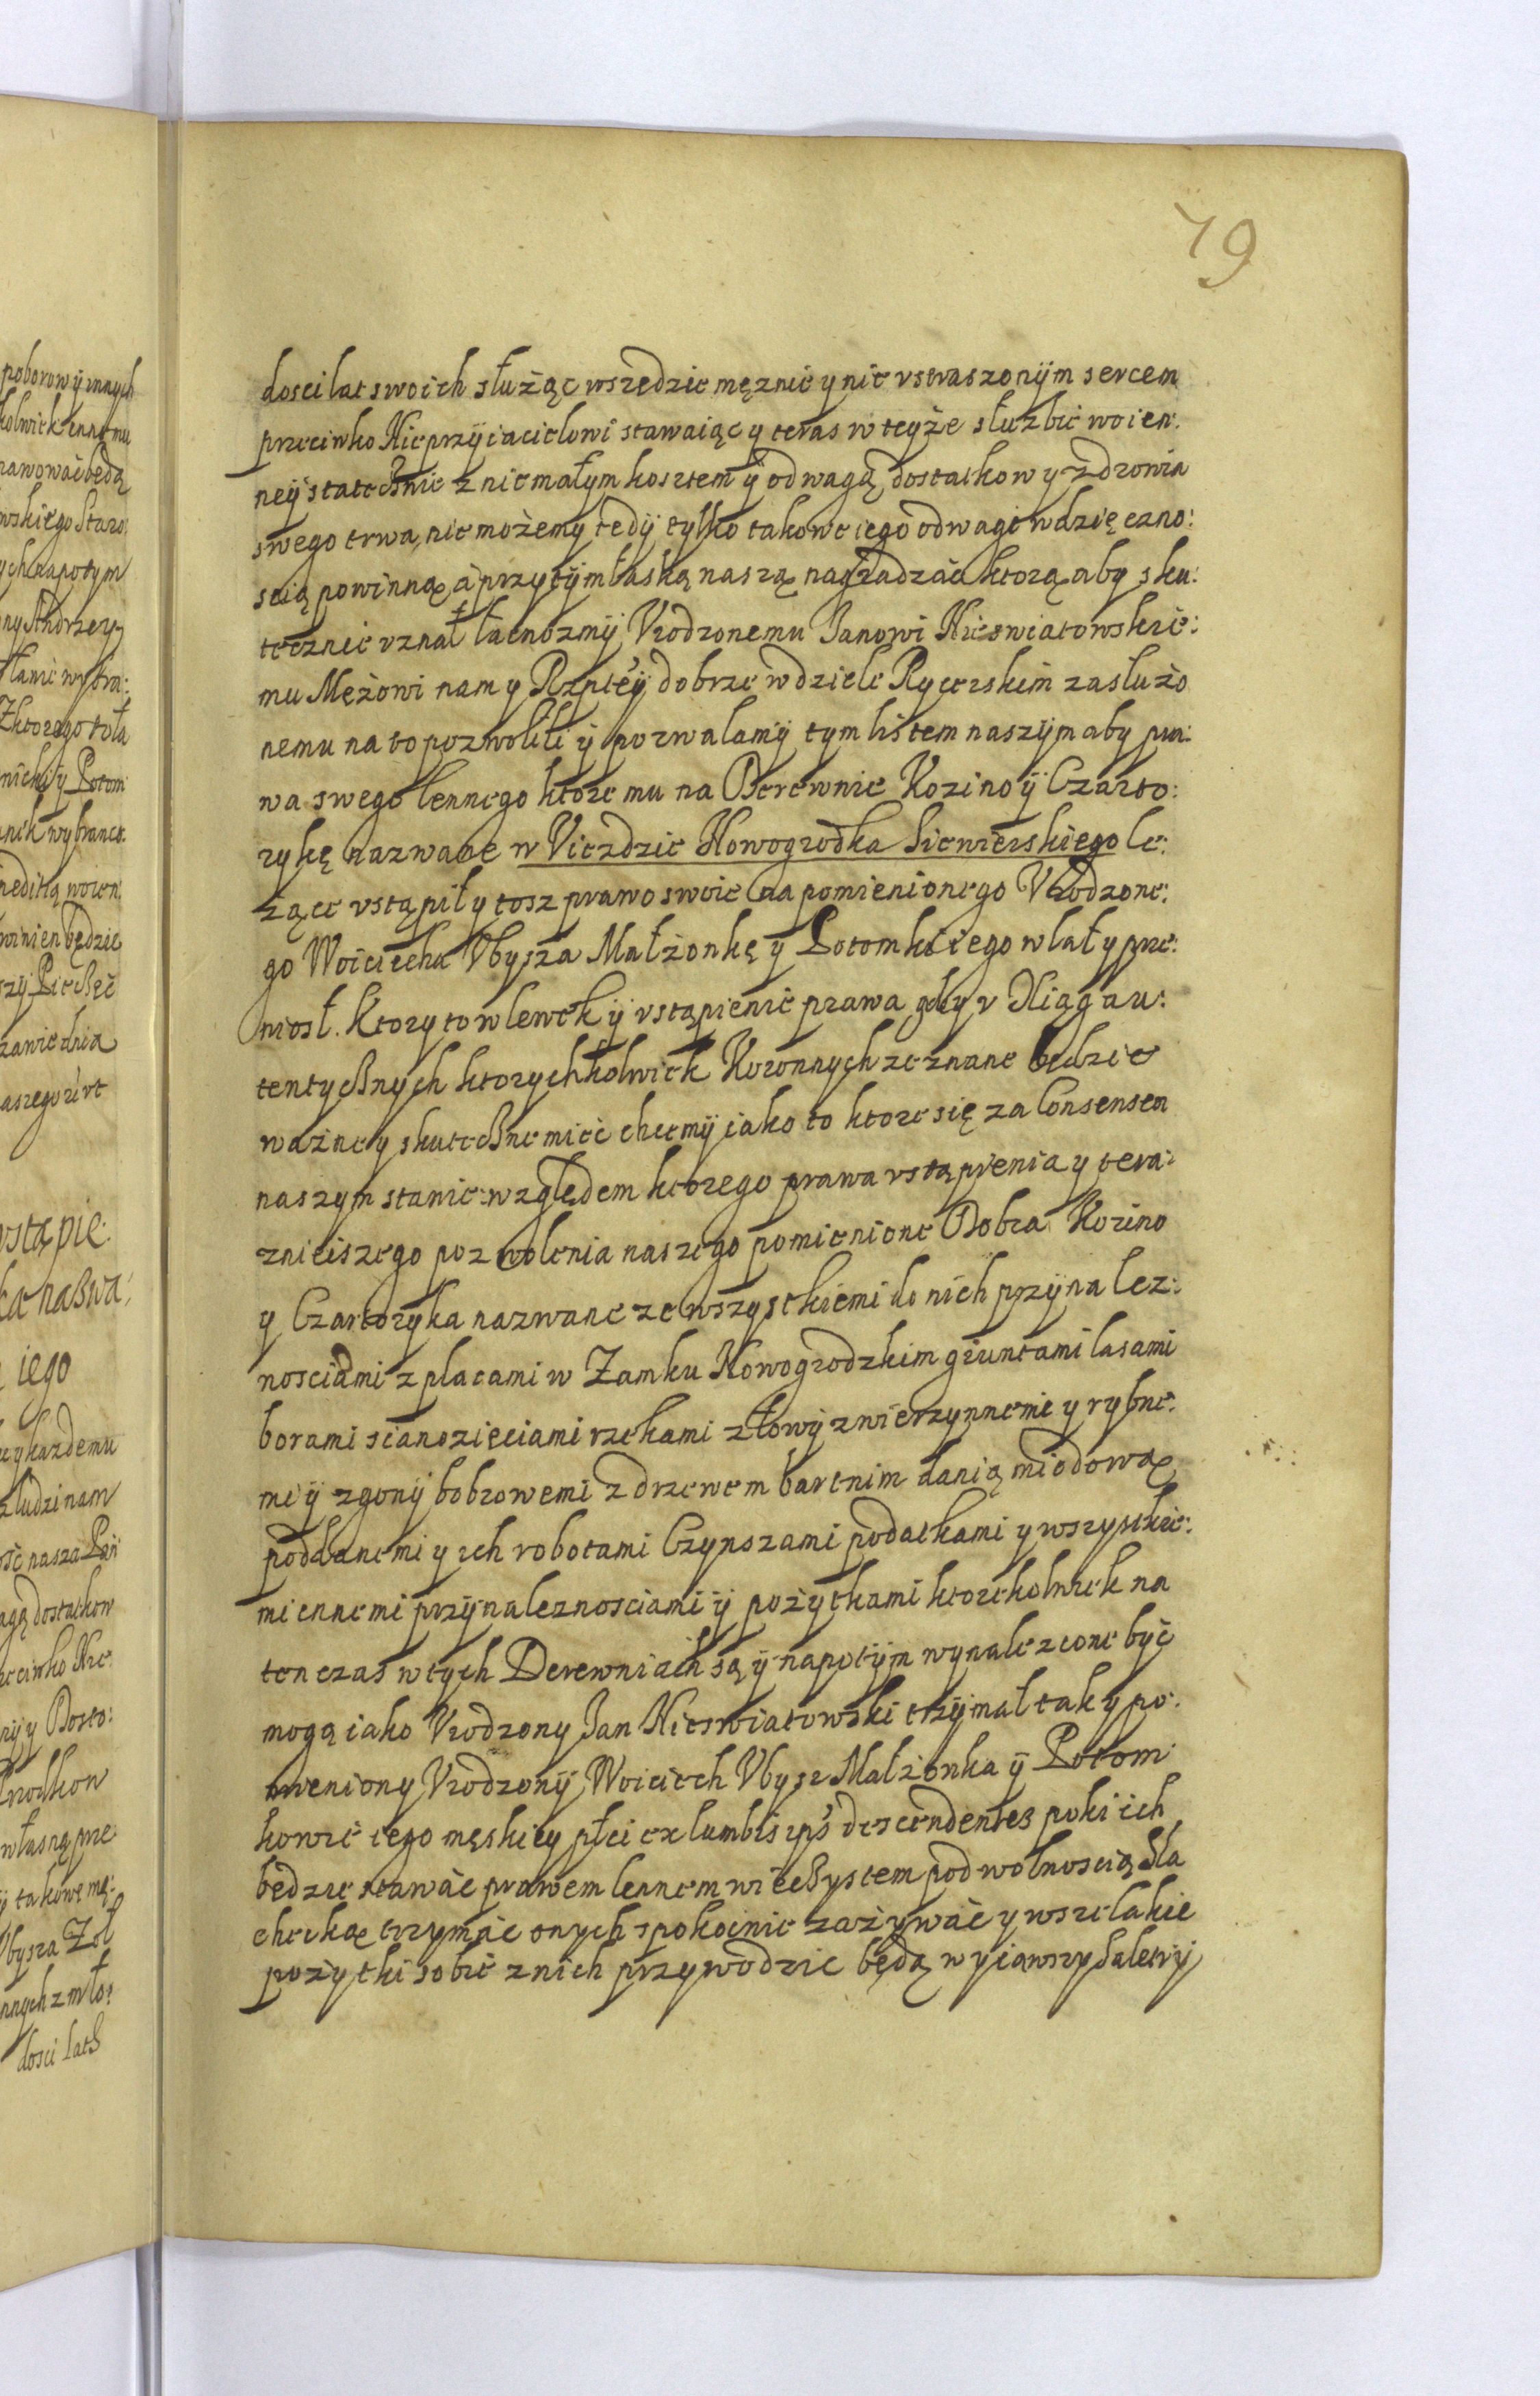 79
dosci lat swoich służąc wszędzie mężnie y nie vstraszonÿm sercem
przeciwko NieprzÿIacielowi stawaiąc y teras w teyże służbie woien:
neÿ statecznie z niemałym kosztem ÿ odwagą dostatkow y zdrowia
swego trwa, nie możemy tedÿ tylko takowe iego odwagi wdzięczno:
scią powinną a przytÿm łaską naszą nagradzać ktorą aby sku:
tecznie vznał łacnozmÿ Vrodzonemu Janowi Nieswiatowskie:
mu Mężowi nam y Rzptėÿ dobrze w dziele Rycerskim zasłużo
nemu na to pozwolili ÿ pozwalamÿ tym listem naszÿm aby pra:
wa swego lennego ktore mu na Derewnie Kozino ÿ Czarto:
rykę nazwane w Vieździe Nowogrodka Siewierskiego le:
żące vstąpił y tosz prawo swoie na pomienionego Vrodzone:
go Woiciecha Vbysza Małżonkę y Potomki iego wlał y prze:
niosł. Ktory to wlewek ÿ vstąpienie prawa gdy v Xiąg au:
tentycznych ktorychkolwiek Koronnych zeznane będzie
ważne y skuteczne mieć chcemÿ iako to ktore się za Consensem
naszym stanie: względem ktorego prawa vstąpienia y tera:
znieiszego pozwolenia naszego pomienione Dobra Kozino
y Czartoryka nazwane ze wszystkiemi do nich przÿnalez:
nosciami z placami w Zamku Nowogrodzkim gruntami lasami
borami sianozięciami rzekami z łowÿ zwierzynnemi y rybne:
mi ÿ zgonÿ bobrowemi z drzewem bartnim danią miodową
poddanemi y ich robotami Czynszami podatkami y wszystkie:
mi ennemi przÿnaleznosciami ÿ pożytkami ktorekolwiek na
ten czas w tych Derewniach są ÿ napotÿm wynalezione być
mogą iako Vrodzony Jan Nieswiatowski trzÿmał tak y po:
mieniony Vrodzonÿ Woiciech Vbysz Małżonka ÿ Potom
kowie iego męskiey płci ex lumbis ips's descendentes poki ich
będzie stawać prawem lennem wieczystem pod wolnoscią szla
checką trzymać onych spokoinie zażywać y wszelakie
pożytki sobie z nich przywodzic będą wyiąwszy Saletrÿ
poborow ÿ innych
kolwiek ennemu
rawować będą
wskiego Staro:
ych napotym
ny Andrzey
Zktorego tota
nicki ÿ Potom
nik wybranct.
winien będzie
vstąpie:
iego
y kazdemu
z ludzi nam
ość nasza Pań
agą dostatkow
zeciwko Nie
własną prze
ÿ takowe mę:
Vbysza Zoł
nnych z mło:
dosci lath